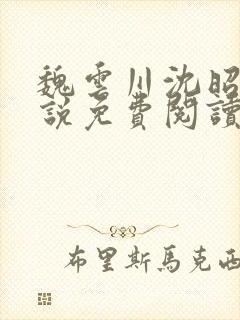 魏雲川沈昭
說免費閱讀
布里斯馬克西